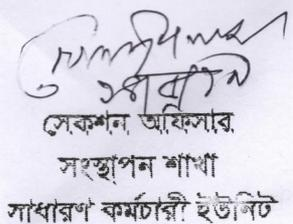 সেকশন অফিসার
সংস্থাপন শাখা
সাধারণ কর্মচারী ইউনিট